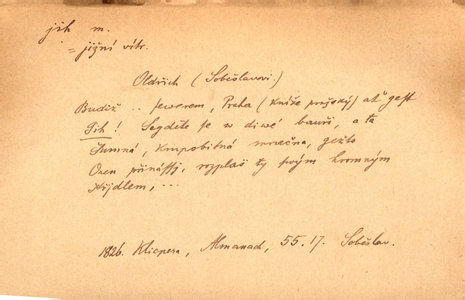 jih m.
= jižní vítr.
Oldřich (Soběslavovi.)
Budiž .. sewerem, Praha (kníže pražský) ať gest
Gih! Segděte se w diwé bauři, a ta
žumná, krupobitná mračna, gežto
Osen přináššj, rozplaš ty swým hromným
křjdlem, ...
1826. Klicpera, Almanach, 55. 17. Soběslav.